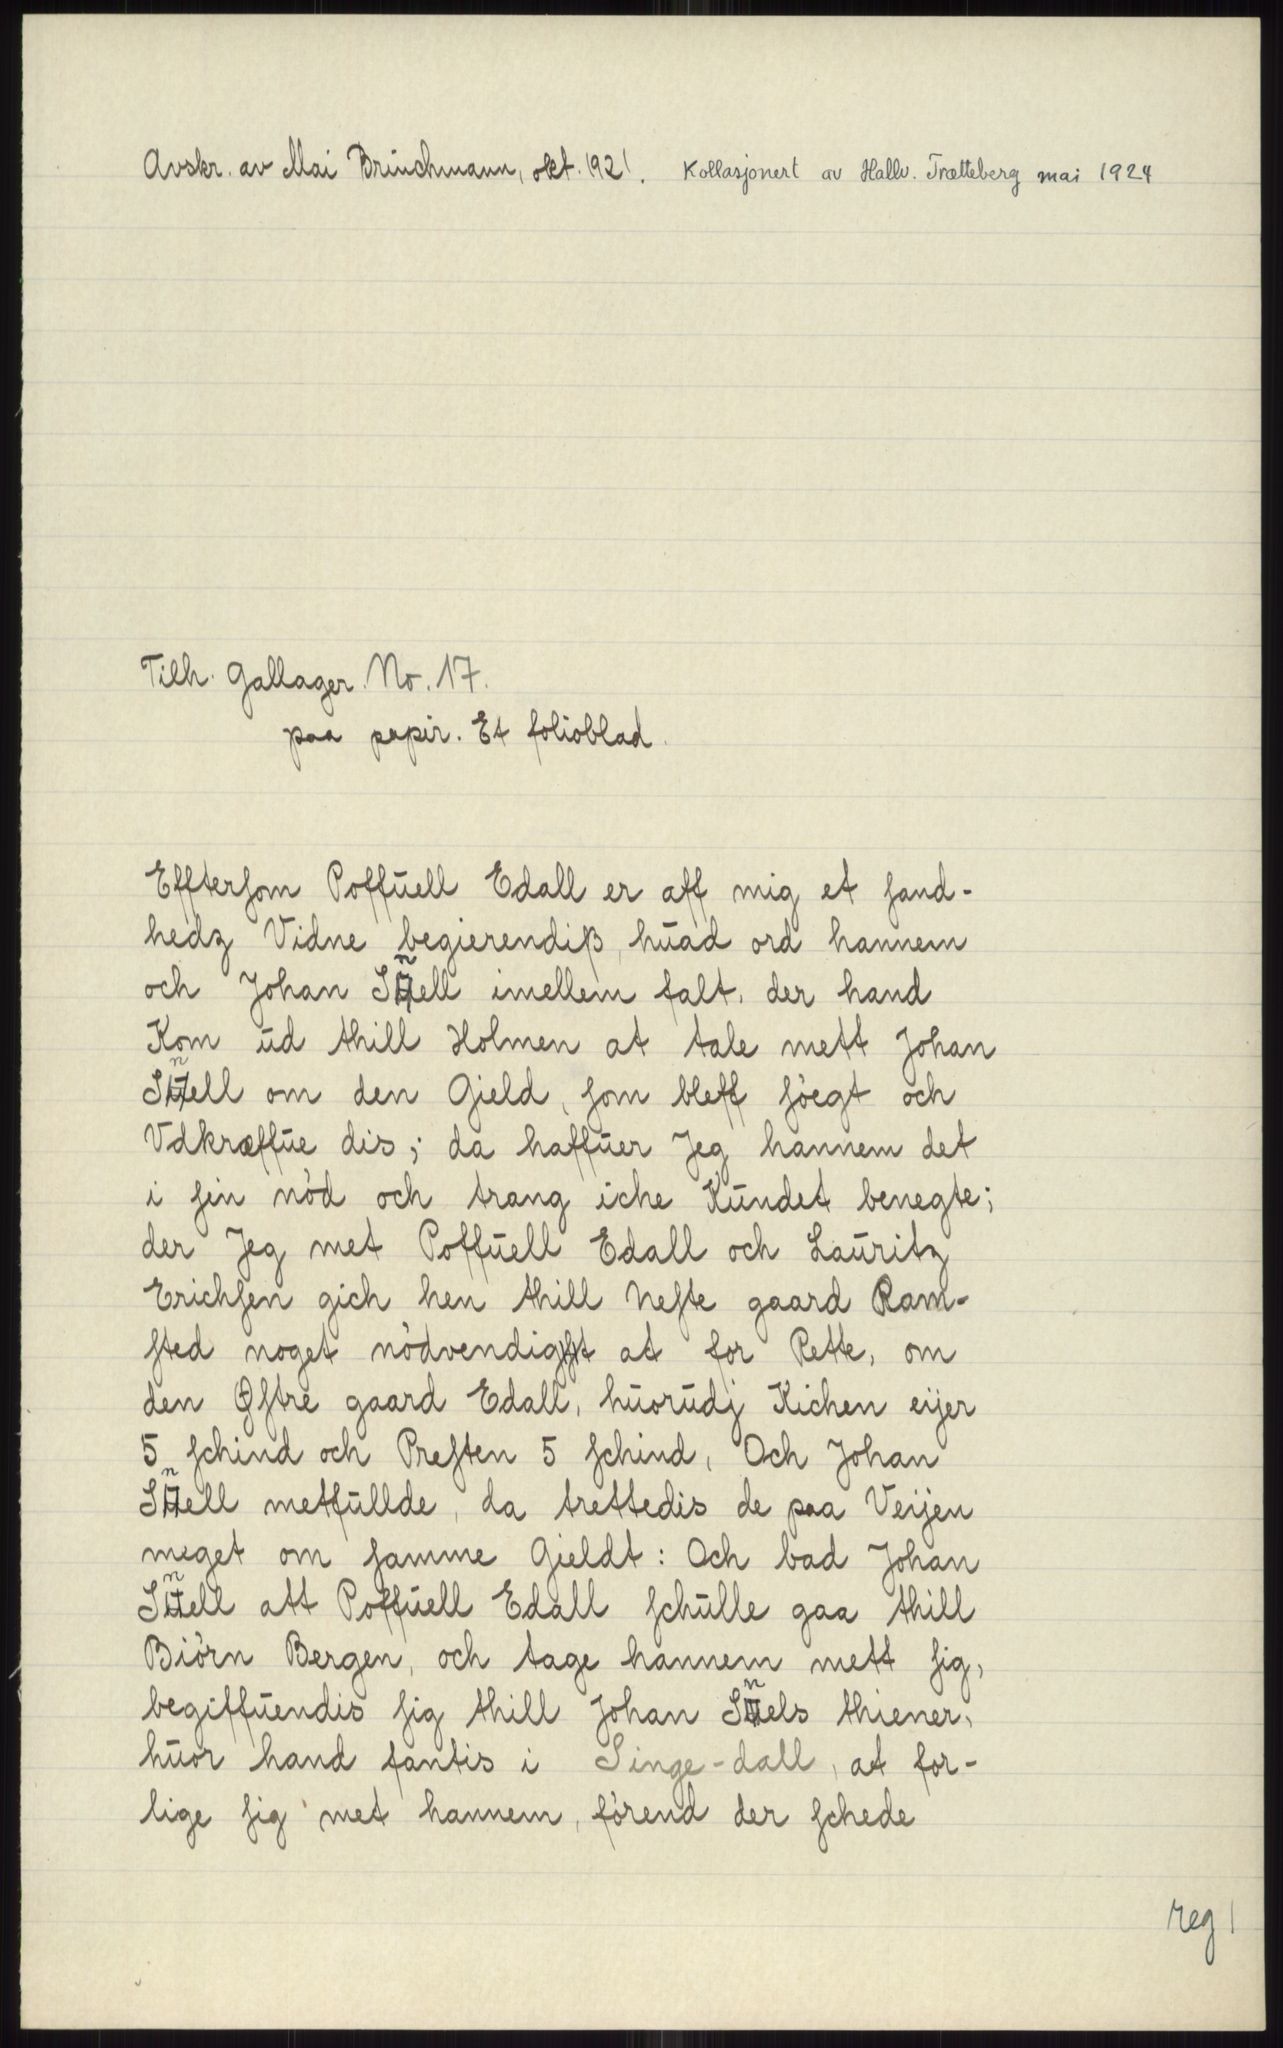 Avskr. av Mai Brüchmann, okt. 1921. Kollasjonert av Hallv. Trætteberg mai 1924
Tilh. Gallager. No. 17.
paa papir. Et folioblad.
Effterſom Poffüell Edall er aff mig et ſand-
hedz Vidne begierendiß, hüad ord hannem
och Johan Snell imellem falt, der hand
Kom üd thill Holmen at tale mett Johan
Snell om den Gield, ſom bleff ſöegt och
Vdkræffüe dis; da haffüer Jeg hannem det
i ſin nöd och trang iche Kündet benegte;
der Jeg met Poffüell Edall och Lauritz
Erichſen gich hen thill Neſte gaard Ram-
ſted noget nödvendigt at for Rette, om
den Øſtre gaard Edall, hüorüdj Kichen eijer
5 ſchind och Preſten 5 ſchind, Och Johan
Snell metfüllde, da trettedis de paa Veijen
meget om ſamme Gieldt: Och bad Johan
Snell att Poffüell Edall ſchülle gaa thill
Biörn Bergen, och tage hannem mett ſig,
begiffüendis ſig thill Johan Snels thiener,
hüor hand fantis i Singe-dall, at for-
lige ſig met hannem, förend der ſchede
reg |